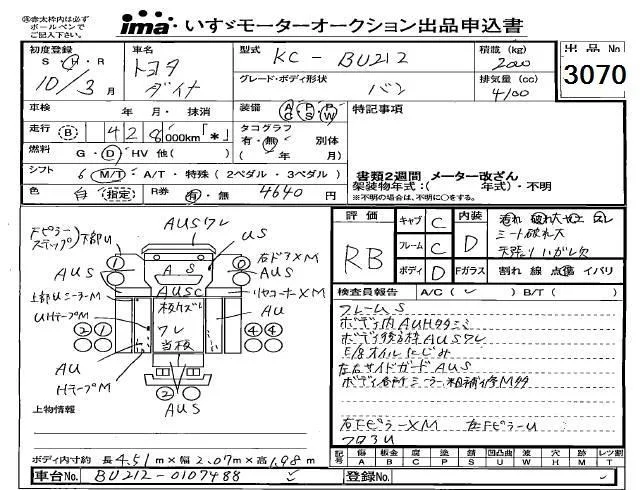 ※赤太枠内は必ず
ボールペンで
ご記入下さい。
ima いすゞモーターオークション出品申込書
初度登録
S・H・R
10/3月
車名
トヨタ
ダイナ
型式
KC-BU212
グレード・ボディ形状
バン
積載(kg)
2000
排気量(cc)
4100
出品No
3070
車検 年 月・抹消
装備 AC PS PW
特記事項
走行 B 428000km「*」
タコグラフ
有・無 別体
年 月
燃料 G・D HV 他( )
シフト 6 M/T・A/T・特殊(2ペダル・3ペダル)
色 白 指定 R券 有・無 4640円
書類2週間 メーター改ざん
架装物年式:( 年式)・不明
※不明の場合は、不明に○をする。
AUSワレ
US
下部U
AUS
AS
右ドアXM
AUS
AUSC
上部UニーラーM
UHテープM
リヤコーナーXM
AU
ワレ
当板
AU
HテープM
AUS
上物情報
ボディ内寸約 長4.51m×幅2.07m×高1.98m
車台No. BU212-0107488
評価
RB
キャブ C
フレーム C
ボディ D
内装 D
シート破れ大
Fガラス 割れ 線 点 傷 イバリ
検査員報告 A/C( ) B/T( )
フレームS
ボディ内AUHタタミ
E/8オイルにじみ
左右サイドガードAUS
右FピラーXM 左FピラーU
フロ3U
記号 傷 板金 腐 塗 錆 凹凸曲 波 穴 跡 レツ割
A B C P S U W H M T
登録No.